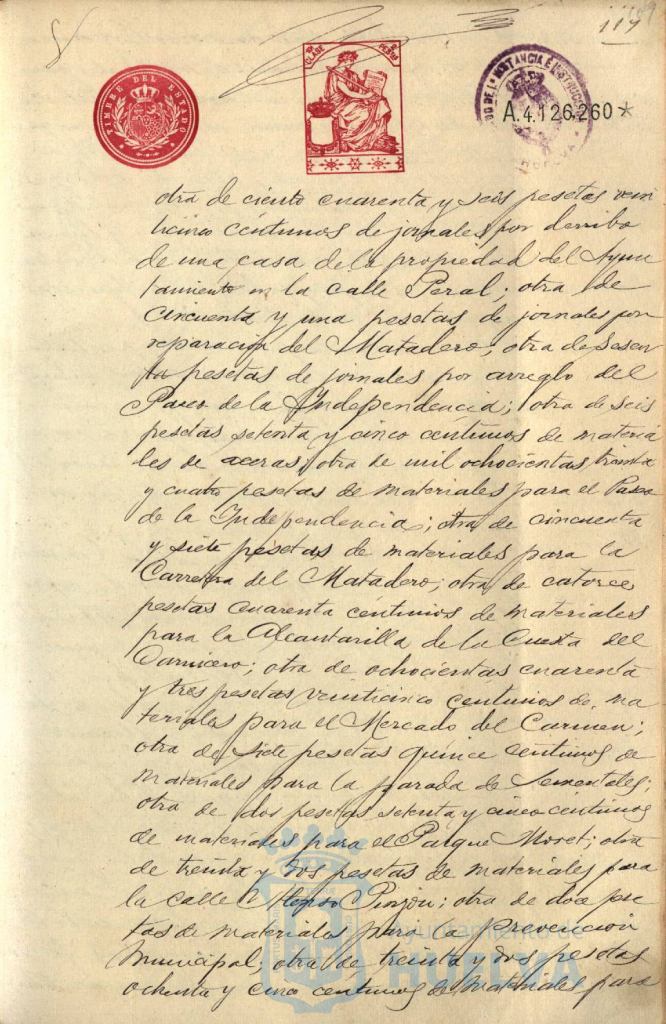 117
TIMBRE DEL ESTADO
CLASE
A.4.126.260*
otra de ciento cuarenta y seis pesetas vein
ticinco céntimos de jornales por derribo
de una casa de la propiedad del Ayun
tamiento en la calle Peral; otra de
cincuenta y una pesetas de jornales por
reparación del Matadero; otra de sesen
ta pesetas de jornales por arreglo del
Paseo de la Independencia; otra de seis
pesetas setenta y cinco centimos de materia
les de aceras; otra de mil ochocientas treinta
y cuatro pesetas de materiales para el Paseo
de la Independencia; otra de cincuenta
y siete pesetas de materiales para la
Carrera del Matadero; otra de catorce
pesetas cuarenta centimos de materiales
para la Alcantarilla de la Cuesta del
Carnicero; otra de ochocientas cuarenta
y tres pesetas veinticinco centimos de ma
teriales para el Mercado del Carmen;
otra de siete pesetas quince centimos de
materiales para la parada de Sementales;
otra de dos pesetas setenta y cinco centimos
de materiales para el Parque Moret; otra
de treinta y dos pesetas de materiales para
la calle Alonso Pinzon; otra de dos pese
tas de materiales para la Prevención
Municipal; otra de treinta y dos pesetas
ochenta y cinco centimos de materiales para
Ayuntamiento de
HUELVA